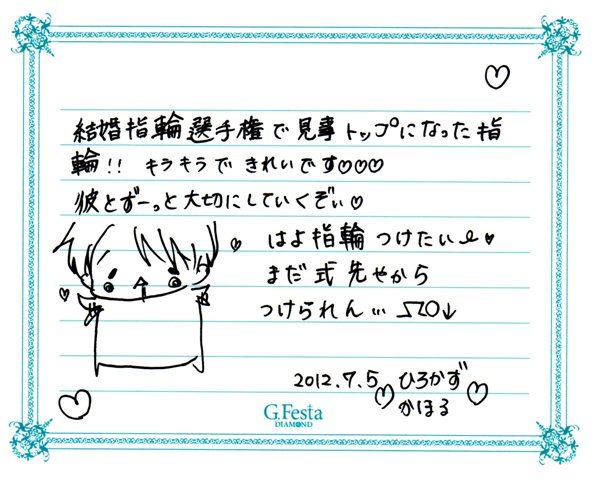 結婚指輪選手権で見事トップになった指
輪!! キラキラで きれいです♡♡♡
彼とずーっと大切にしていくぞぃ♡
はよ指輪つけたぃ〜♥
まだ式先やから
つけられん… ↓
2012.7.5 ひろかず
かほる
G.Festa
DIAMOND